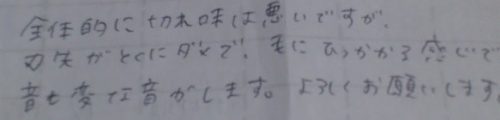 全体的に切れ味は悪いですが、
刃先がとくにダメで、毛にひっかかる感じで
音も変な音がします。よろしくお願いします。